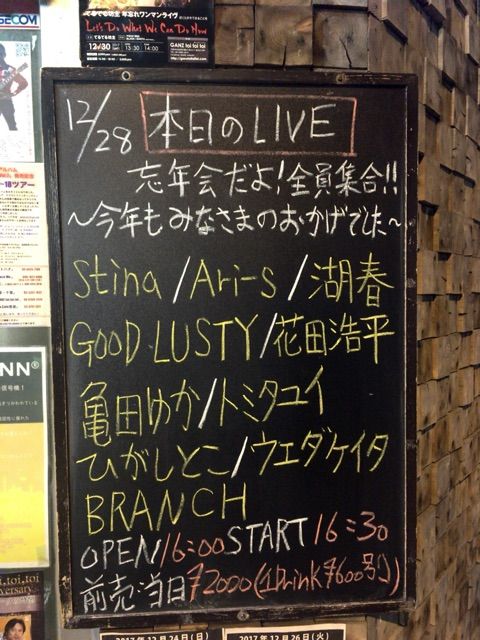 SECOM
てるてる坊主 年忘れワンマンライヴ
Let's Do What We Can Do Now
12/30
13:30
14:00
GANZ toi toi toi
12/28 本日のLIVE
忘年会だよ!全員集合!!
～今年もみなさまのおかげでした～
Stina/Ari-s/湖春
GOOD LUSTY/花田浩平
亀田ゆか/トミタユイ
ひがしとこ/ウエダケイタ
BRANCH
OPEN16:00START16:30
前売/当日¥2000(1Drink¥600別)
-18ツアー
NN®
toi,toi
2017年12月24日(日)
2017年12月26日(火)